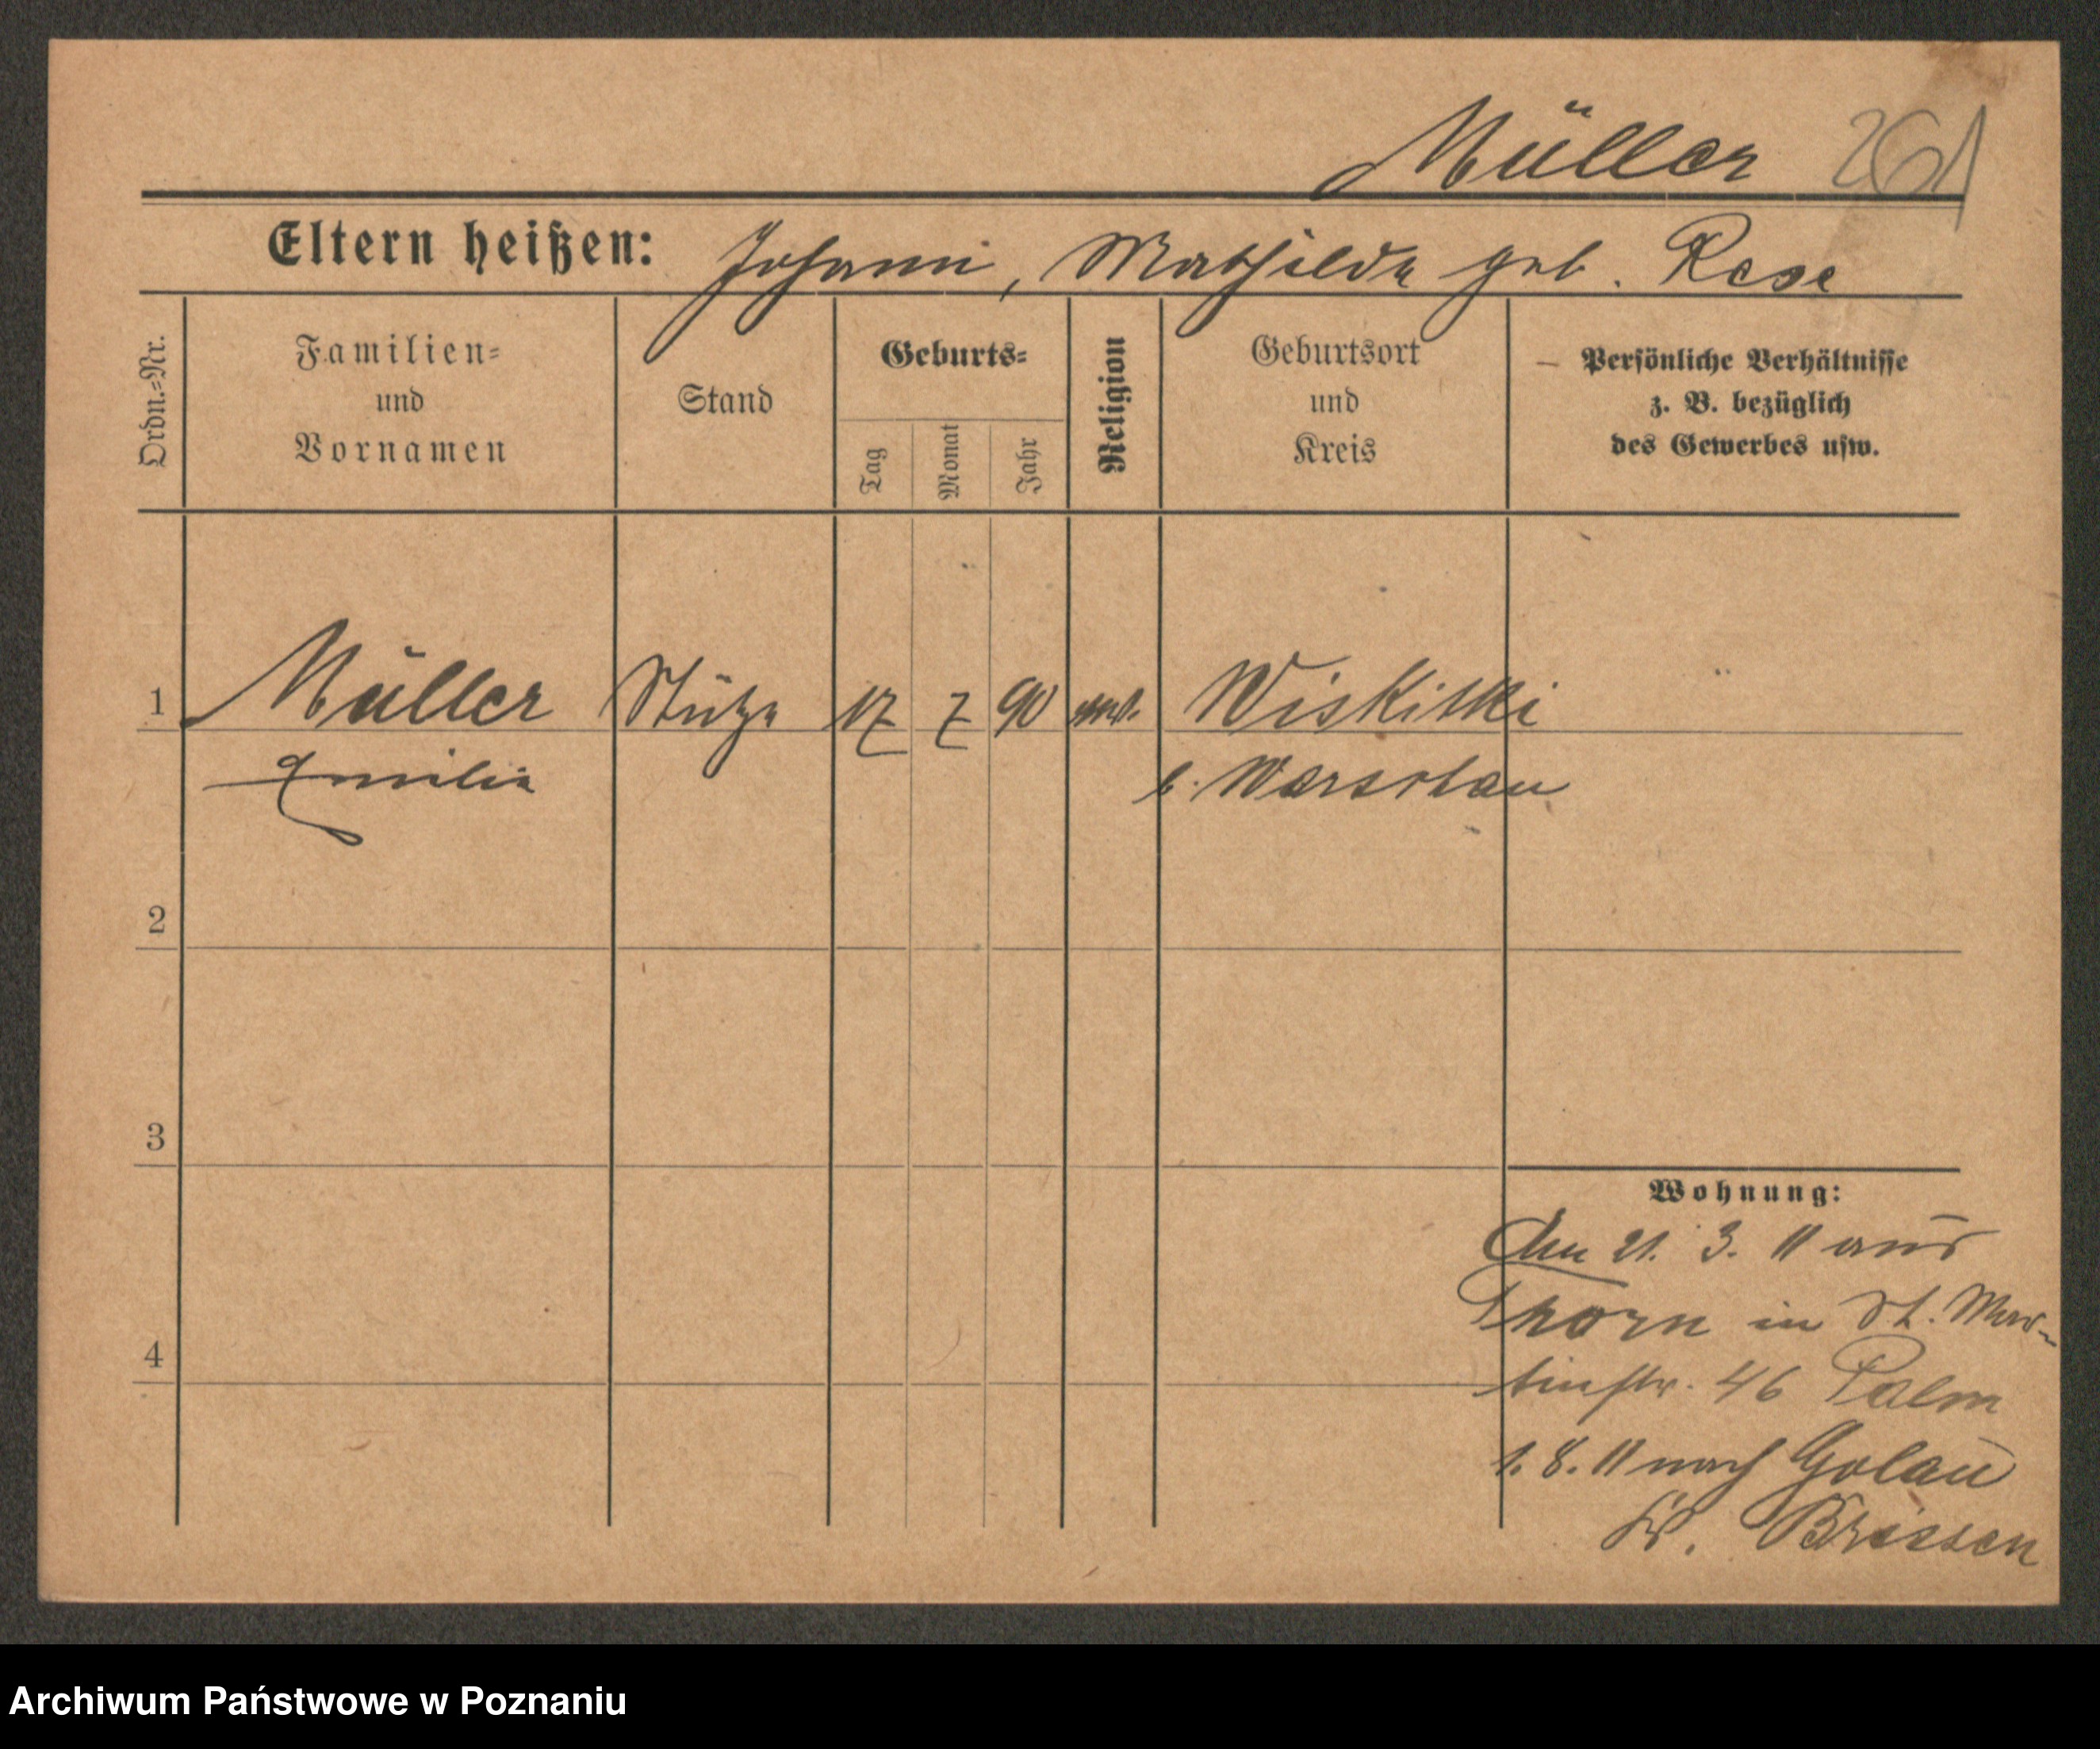 Müller 261
Eltern heißen: Johann, Mathilde geb. Rose
Ordn.-Nr.
Familien-
und
Vornamen
Stand
Geburts-
Tag
Monat
Jahr
Religion
Geburtsort
und
Kreis
Persönliche Verhältnisse
z. B. bezüglich
des Gewerbes usw.
1 Müller Stütze 17 7 90 Wiskitki
Emilie b. Warschau
2
3
4
Wohnung:
Am 21. 3. 11 aus
Thorn in St. Mar-
tinstr. 46 Palm
1. 8. 11 nach Golau
Kr. Briesen
Archiwum Państwowe w Poznaniu